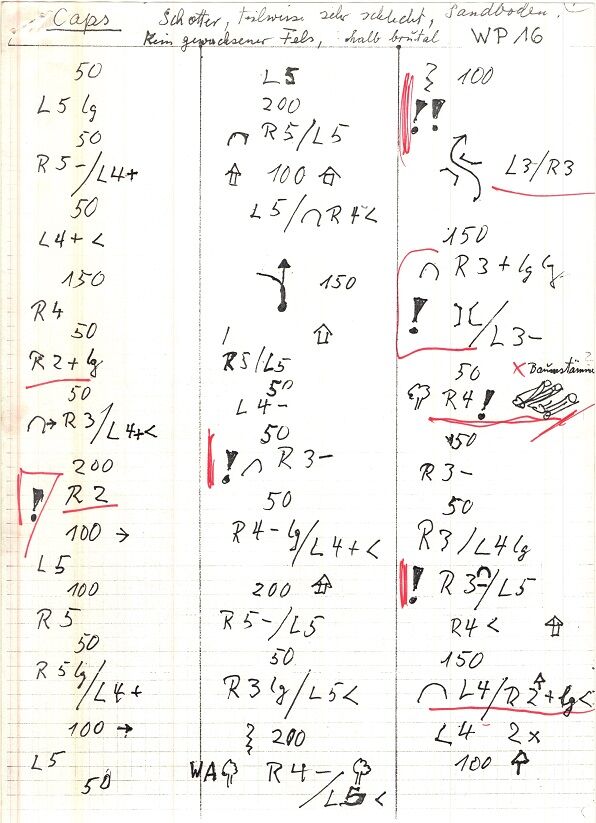 Caps Schotter, teilweise sehr schlecht, Sandboden,
Kein gewachsener Fels, halb brutal WP 16
50
L5 lg
50
R5-/L4+
50
L4+<
150
R4
50
R2+lg
50
→R3/L4+<
200
! R2
100 →
L5
100
R5
50
R5lg/L4+
100 →
L5
50
L5
200
R5/L5
100
L5/R4<
150
R5/L5
50
L4-
50
! R3-
50
R4-lg/L4+<
200
R5-/L5
50
R3lg/L5<
200
WA R4-
/L5<
100
!!
L3/R3
150
R3+lglg
! /L3-
50 x Baumstämme
R4!
50
R3-
50
R3/L4lg
! R3-/L5
R4<
150
L4/R2+lg<
L4- 2x
100